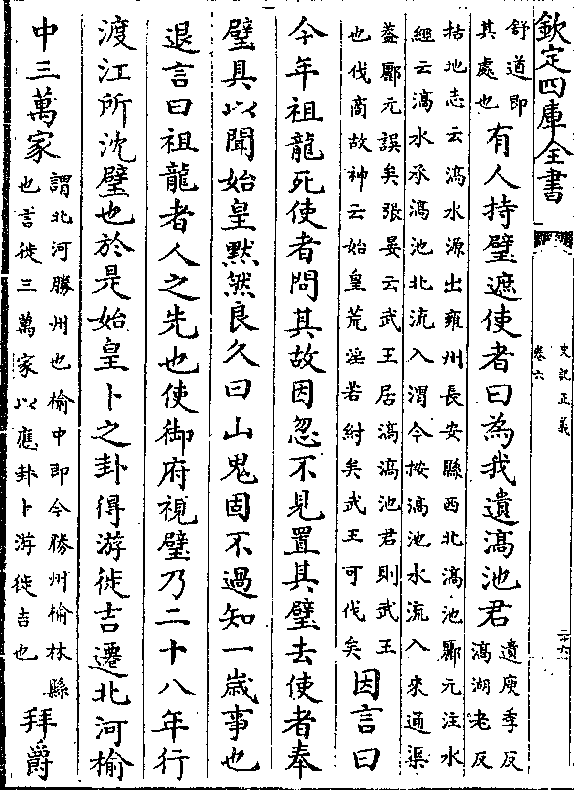 欽定四庫全書
史記正義
卷六
二十六
舒道即
其處也
有人持璧遮使者曰為我遺滈池君
遺庾季反
滈湖老反
括地志云滈水源出雍州長安縣西北滈池酈元注水
經云滈水承滈池北流入渭今按滈池水流入來通渠
葢酈元誤矣張晏云武王居滈滈池君則武王
也伐商故神云始皇荒淫若紂矣武王可伐矣
因言曰
今年祖龍死使者問其故因忽不見置其璧去使者奉
璧具以聞始皇黙然良久曰山鬼固不過知一歳事也
退言曰祖龍者人之先也使御府視璧乃二十八年行
渡江所沈璧也於是始皇卜之卦得游徙吉遷北河榆
中三萬家
謂北河勝州也榆中即今勝州榆林縣
也言徙三萬家以應卦卜游徙吉也
拜爵